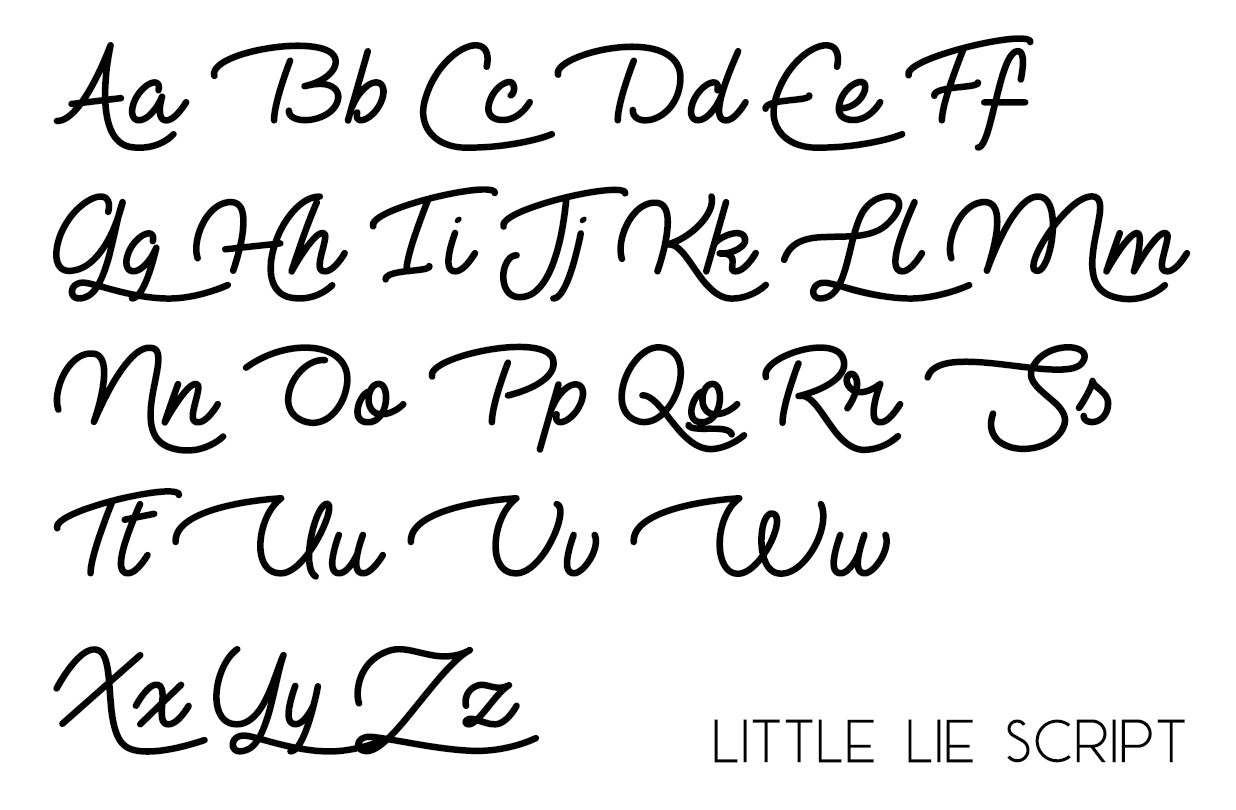 Aa Bb Cc Dd Ee Ff
Gg Hh Ii Jj Kk Ll Mm
Nn Oo Pp Qq Rr Ss
Tt Uu Vv Ww
Xx Yy Zz
LITTLE LIE SCRIPT